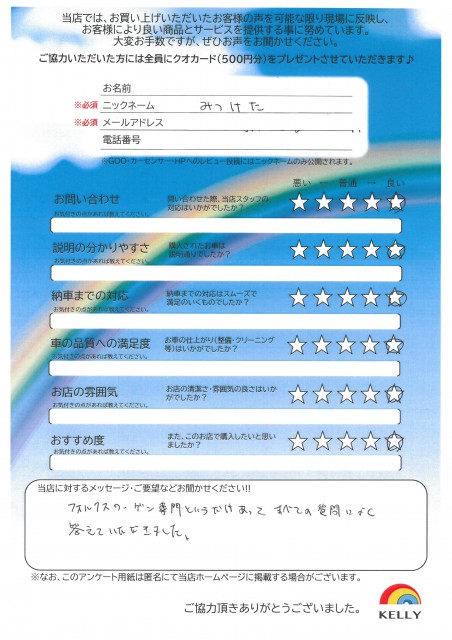 当店では、お買い上げいただいたお客様の声を可能な限り現場に反映し、
お客様により良い商品とサービスを提供する事に努めています。
大変お手数ですが、ぜひお声をお聞かせください。
ご協力いただいた方には全員にクオカード(500円分)をプレゼントさせていただきます♪
お名前
※必須 ニックネーム みつけた
※必須 メールアドレス
電話番号
※GOO・カーセンサー・HPへのレビュー投稿にはニックネームのみ公開されます。
悪い ー 普通 ー 良い
お問い合わせ 問い合わせた際、当店スタッフの
お気付きの点があれば教えてください。 対応はいかがでしたか？
説明の分かりやすさ 購入されたお車は
お気付きの点があれば教えてください。 説明通りでしたか？
納車までの対応 納車までの対応はスムーズで
お気付きの点があれば教えてください。 満足のいくものでしたか？
車の品質への満足度 お車の仕上がり(整備・クリーニング
お気付きの点があれば教えてください。 等)はいかがでしたか？
お店の雰囲気 お店の清潔さ・雰囲気の良さはいか
お気付きの点があれば教えてください。 がでしたか？
おすすめ度 また、このお店で購入したいと思い
お気付きの点があれば教えてください。 ましたか？
当店に対するメッセージ・ご要望などお聞かせください!!
フォルクスワーゲン専門というだけあって すべての質問に
答えていただきました。
※なお、このアンケート用紙は匿名にて当店ホームページに掲載する場合がございます。
ご協力頂きありがとうございました。
KELLY